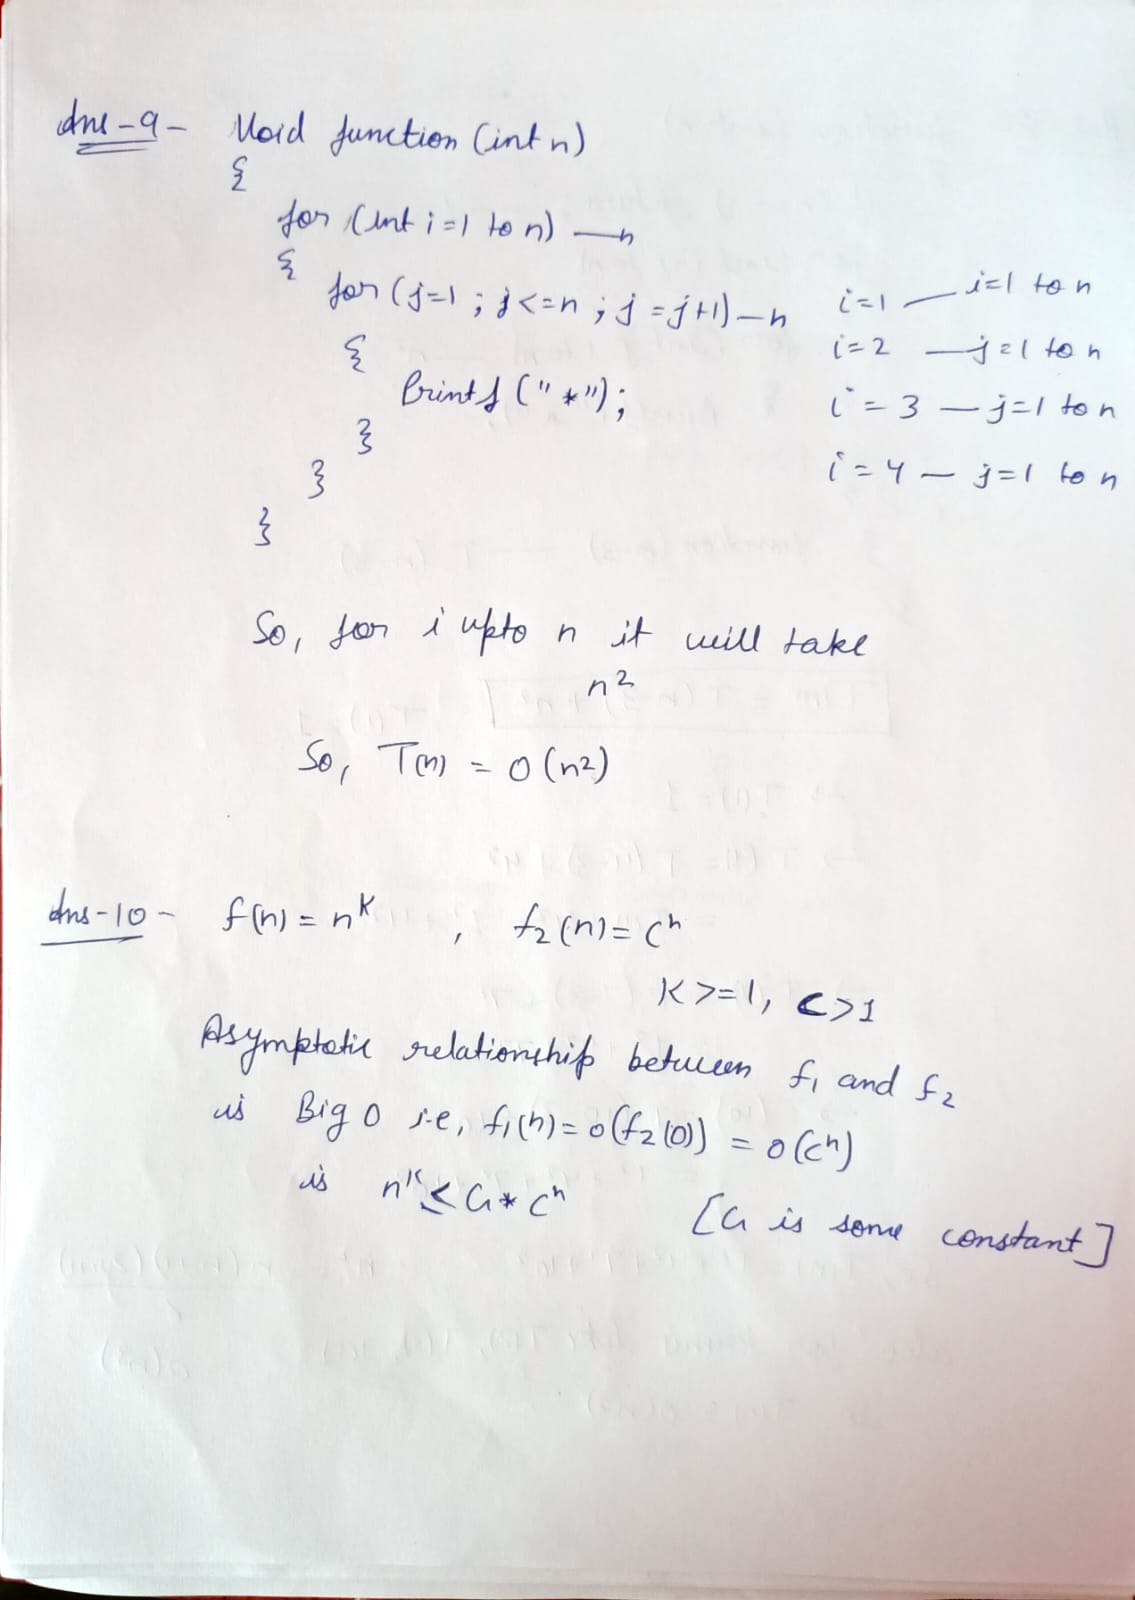 Ans-9- Void function (int n)
{
for (int i=1 to n) — n
{
for (j=1 ; j<=n ; j=j+1) — n
{
Printf ("*");
}
}
}
i=1 — i=1 to n
i=2 — j=1 to n
i=3 — j=1 to n
i=4 — j=1 to n
So, for i upto n it will take
n²
So, T(n) = O(n²)
Ans-10- f(n) = n^k , f₂(n) = cⁿ
K>=1, c>1
Asymptotic relationship between f₁ and f₂
is Big O i.e, f₁(n) = O(f₂(0)) = O(cⁿ)
is n^k ≤ G * cⁿ [G is some constant]